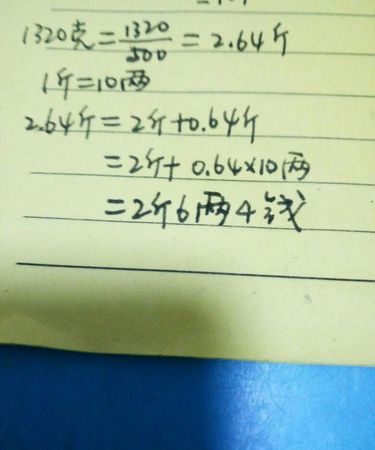 1320克=1320/500=2.64斤
1斤=10两
2.64斤=2斤+0.64斤
=2斤+0.64×10两
=2斤6两4钱